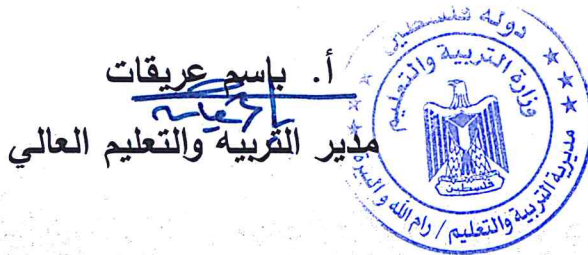 أ. باسم عريقات
مدير التربية والتعليم العالي
دولة فلسطين
وزارة التربية والتعليم
فلسطين
مديرية التربية والتعليم / رام الله و البيرة